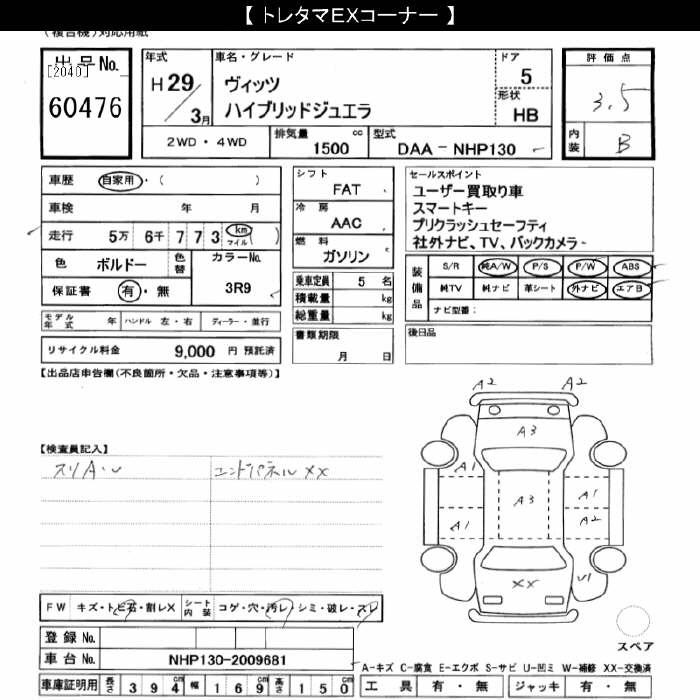 【 トレタマEXコーナー 】
(複合機)対応用紙
出品No.
[2040]
60476
年式
H 29
3月
車名・グレード
ヴィッツ
ハイブリッドジュエラ
ドア
5
形状
HB
2WD・4WD
排気量 cc
1500
型式
DAA－NHP130
評価点
3.5
内装
B
車歴 自家用・( )
車検 年 月
走行 5万 6千 7 7 3 km マイル ( )
色 ボルドー 色替 カラーNo. 3R9
保証書 有・無
モデル年式 年 ハンドル 左・右 ディーラー・並行
リサイクル料金 9,000 円 預託済
シフト
FAT
冷房
AAC
燃料
ガソリン
乗車定員 5 名
積載量 kg
総重量 kg
書類期限
月 日
セールスポイント
ユーザー買取り車
スマートキー
プリクラッシュセーフティ
社外ナビ、TV、バックカメラ
装備品
S/R 純A/W P/S P/W ABS
純TV 純ナビ 革シート 外ナビ エアB
ナビ型番:
後日品
【出品店申告欄(不良箇所・欠品・注意事項等)】
【検査員記入】
スリA・U
エンドパネルXX
A2 A2
A3
A1
A3
A1
A1
A2
XX
U1
スペア
FW キズ・トビ石・割レX シート内装 コゲ・穴・汚レ・シミ・破レ・スレ
登録 No.
車台 No. NHP130-2009681
車庫証明用 長さ 394cm 幅 169cm 高さ 150cm
A-キズ C-腐食 E-エクボ S-サビ U-凹ミ W-補修 XX-交換済
工具 有・無 ジャッキ 有・無